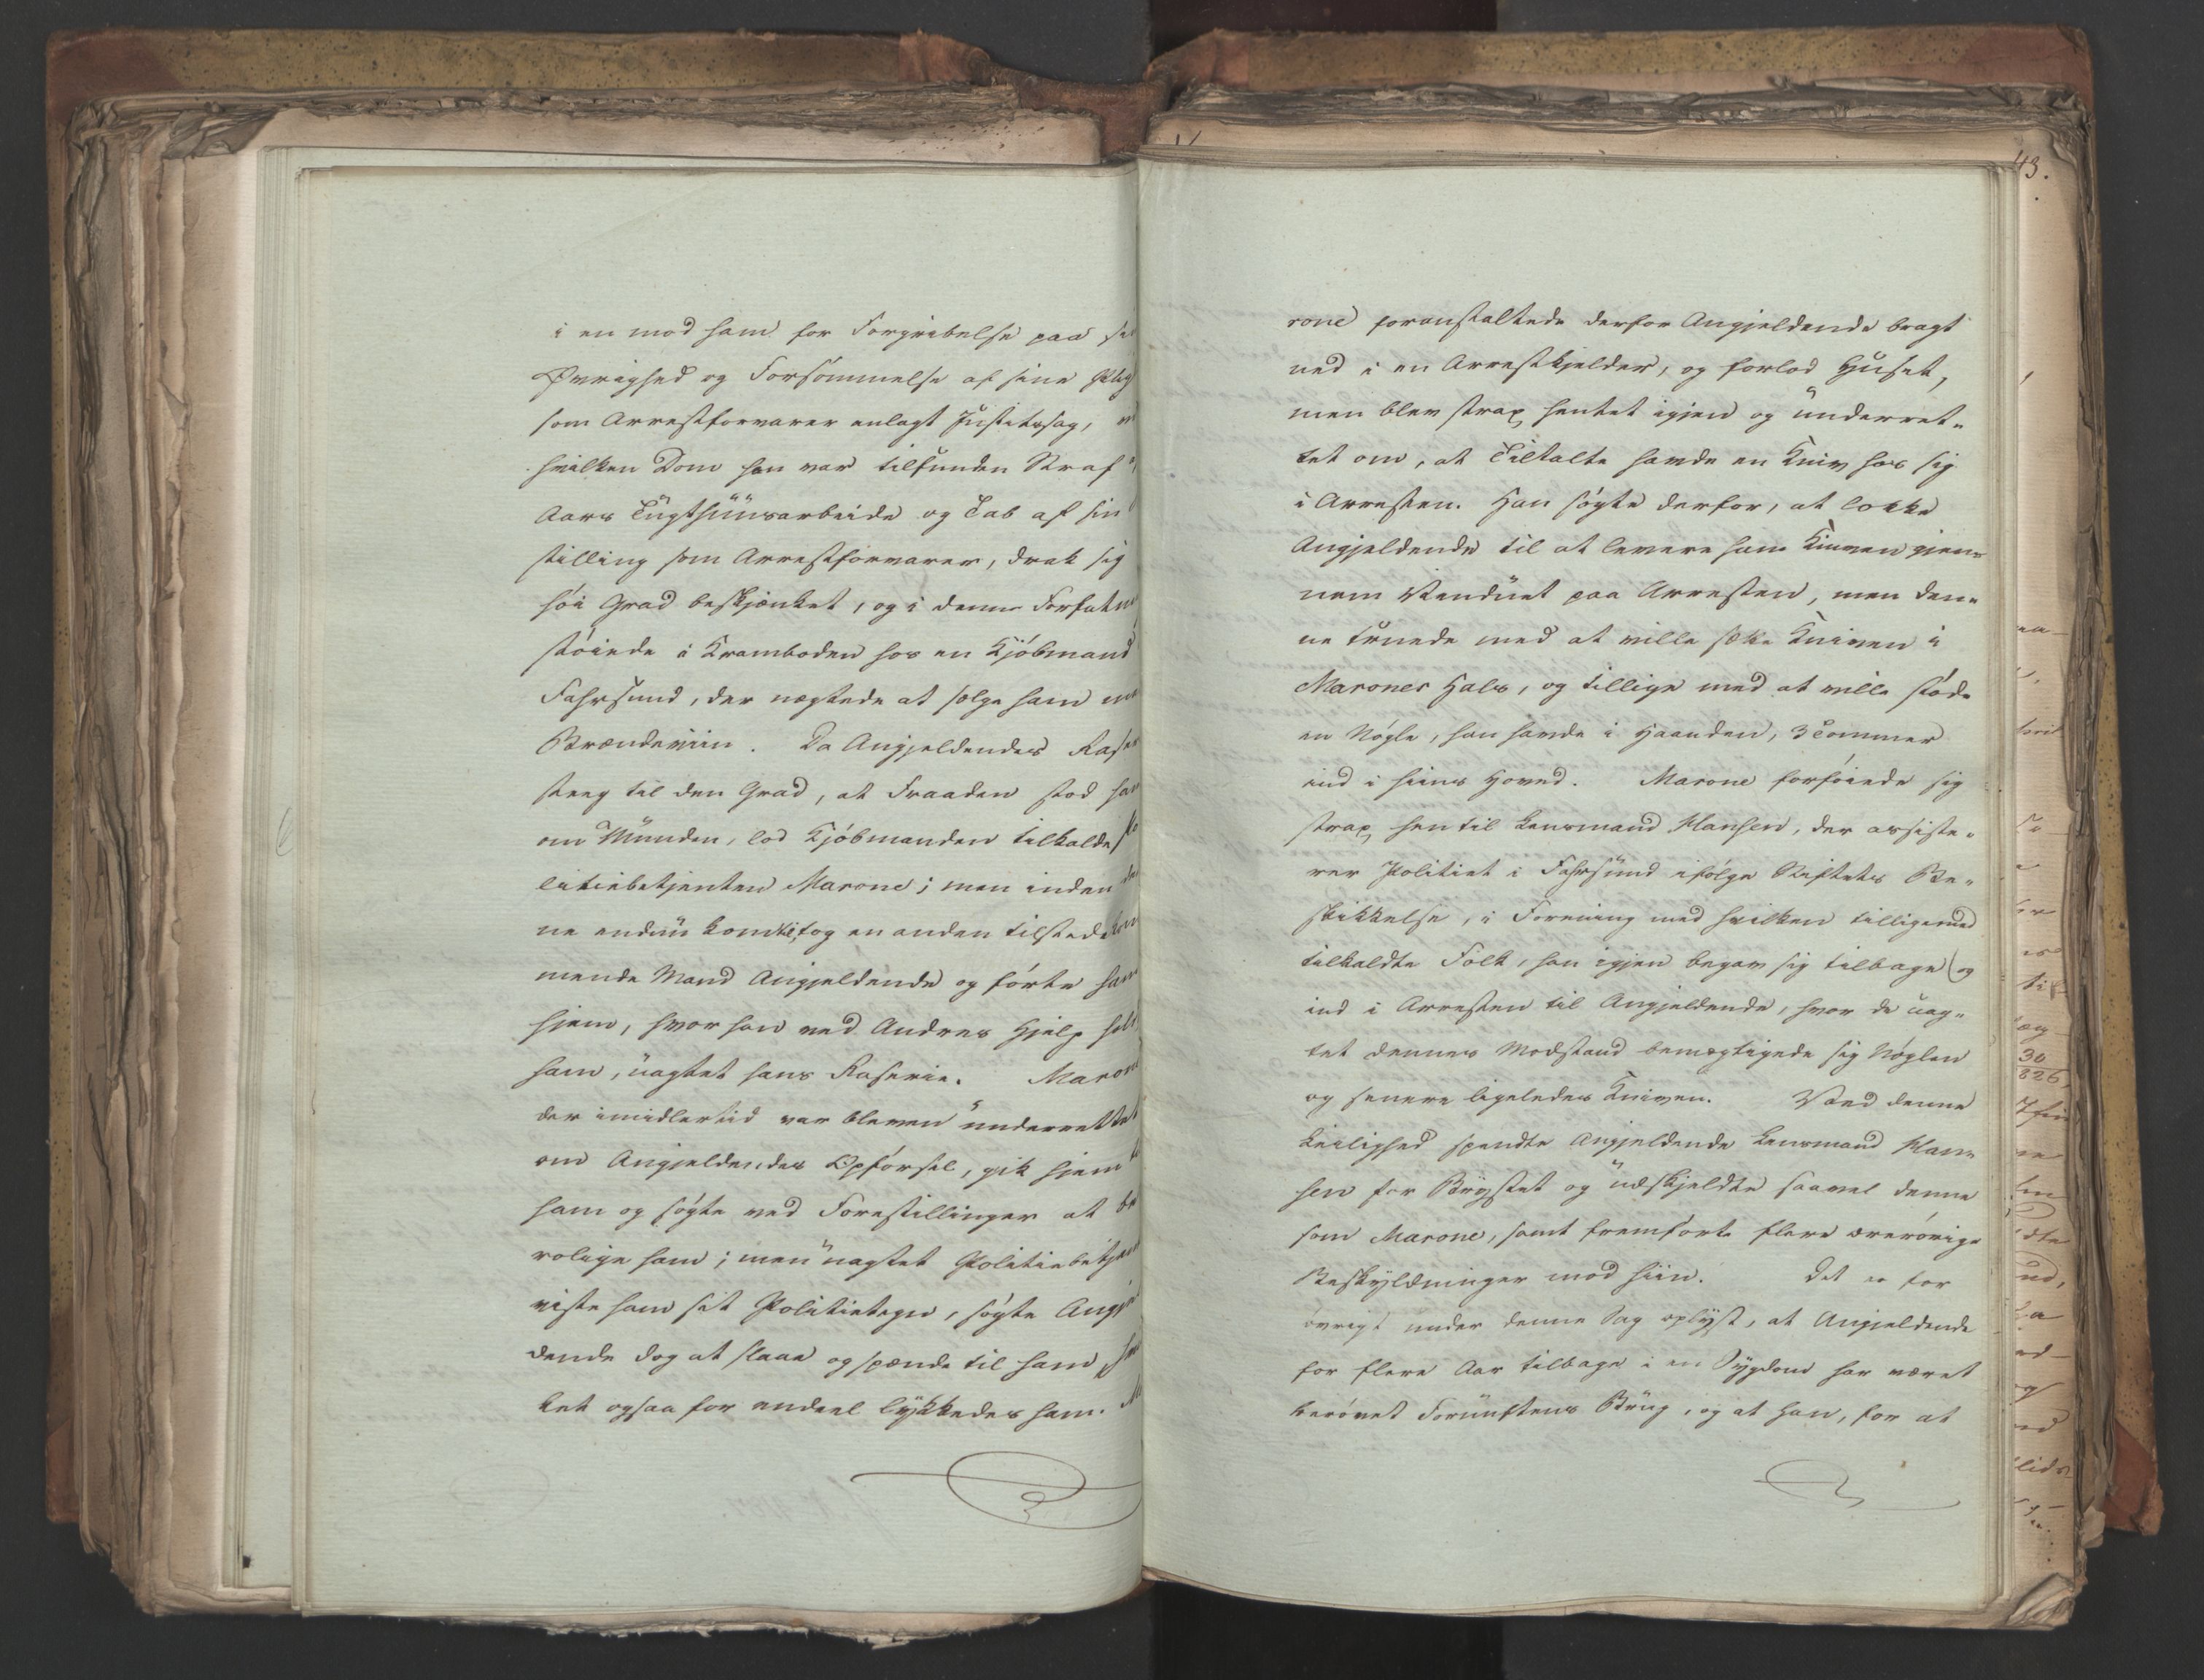 i en mod ham for Forgribelse paa
Øvrighed og Forsømmelse af sine
som Arrestforvarer anlagt Justitssag,
hvilken Dom han var tilfunden Straf
Aars Tugthuusarbeide og Tab af sin
stilling som Arrestforvarer, drak sig
høi Grad beskjænket, og i denne
støiede i Kramboden hos en Kjøbmand
Fahrsund, der nægtede at sælge ham
Brændeviin. Da Angjeldendes
steeg til den Grad, at Fraaden stod ham
om Munden, lod Kjøbmanden tilkalde Po
litiebetjenten Marone; men inden den
ne endnu kom til, tog en anden tilstedekom
mende Mand Angjeldende og førte ham
hjem, hvor han ved Andres Hjelp holdt
ham, uagtet hans Raserie. Marone
der imidlertid var bleven underrettet
om Angjeldendes Opførsel, gik hjem til
ham og søgte ved Forestillinger at be
rolige ham; men uagtet
viste ham sit Politietegn, søgte Angjel
dende dog at slaae og spænde til ham,
ket ogsaa for endeel lykkedes ham. Ma
43.
rone foranstaltede derfor Angjeldende bragt
ned i en Arrestkjelder, og forlod Huset,
men blev strax hentet igjen og underret-
tet om, at Tiltalte havde en Kniv hos sig
i Arresten. Han søgte derfor, at lokke
Angjeldende til at levere ham Kniven gjen-
nem Vinduet paa Arresten, men den-
ne truede med at ville stikke Kniven i
Marones Hals, og tillige med at ville støde
en Nøgle, han havde i Haanden, 3 Tommer
ind i hiins Hoved. Marone forføiede sig
strax hen til Lensmand Hansen, der assiste-
rer Politiet i Fahrsund ifølge Stiftets Be-
skikkelse, i Forening med hvilken tilligemed
tilkaldte Folk, han igjen begav sig tilbage og
ind i Arresten til Angjeldende, hvor de uag-
tet dennes Modstand bemægtigede sig Nøglen
og senere ligeledes Kniven. Ved denne
Leilighed spændte Angjeldende Lensmand Han-
sen for Brystet og udskjeldte saavel denne
som Marone, samt fremførte flere ærerørige
Beskyldninger mod hiin. Det er for
øvrigt under denne Sag oplyst, at Angjeldende
for flere Aar tilbage i en Sygdom har været
berøvet Fornuftens Brug, og at han, for at